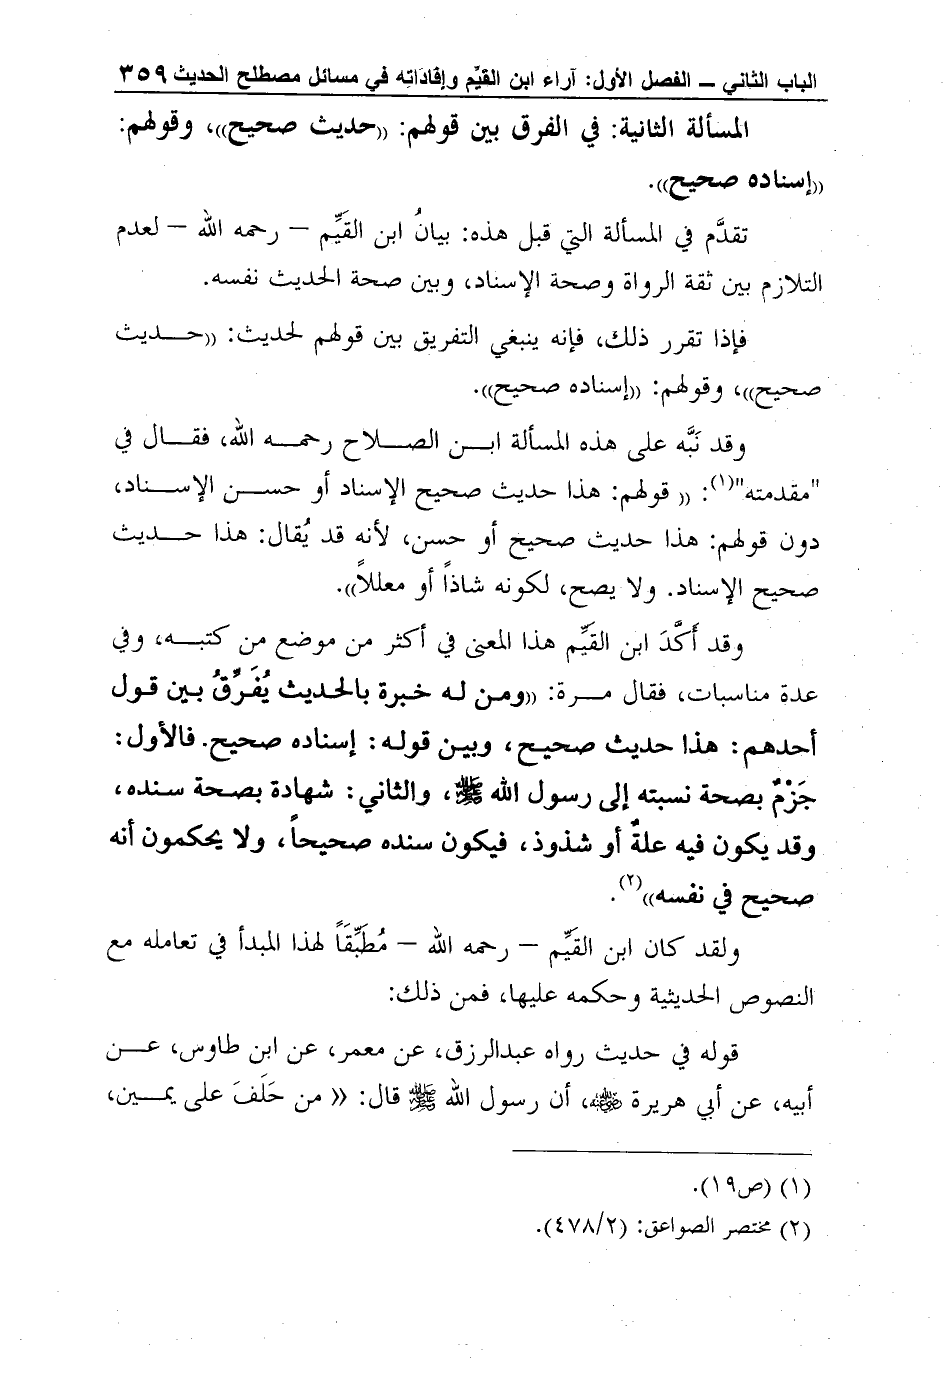 الباب الثاني ــ الفصل الأول: آراء ابن القيِّم وإفادَاته في مسائل مصطلح الحديث ٣٥٩
المسألة الثانية: في الفرق بين قولهم: ((حديث صحيح))، وقولهم:
((إسناده صحيح)).
تقدَّم في المسألة التي قبل هذه: بيانُ ابن القيِّم – رحمه الله – لعدم
التلازم بين ثقة الرواة وصحة الإسناد، وبين صحة الحديث نفسه.
فإذا تقرر ذلك، فإنه ينبغي التفريق بين قولهم لحديث: ((حـــديث
صحيح))، وقولهم: ((إسناده صحيح)).
وقد نَبَّه على هذه المسألة ابـــن الصـــلاح رحمـــه الله، فقـــال في
"مقدمته"(١): (( قولهم: هذا حديث صحيح الإسناد أو حســن الإســناد،
دون قولهم: هذا حديث صحيح أو حسن، لأنه قد يُقال: هذا حـــديث
صحيح الإسناد. ولا يصح، لكونه شاذاً أو معللاً)).
وقد أَكَّدَ ابن القيِّم هذا المعنى في أكثر من موضع من كتبـــه، وفي
عدة مناسبات، فقال مـــرة: ((ومن له خبرة بالحديث يُفَرِّقُ بين قول
أحدهم: هذا حديث صحيح، وبين قوله: إسناده صحيح. فالأول:
جَزْمٌ بصحة نسبته إلى رسول الله ﷺ، والثاني: شهادة بصحة سنده،
وقد يكون فيه علةٌ أو شذوذ، فيكون سنده صحيحاً، ولا يحكمون أنه
صحيح في نفسه))(٢).
ولقد كان ابن القيِّم – رحمه الله – مُطَبِّقَاً لهذا المبدأ في تعامله مع
النصوص الحديثية وحكمه عليها، فمن ذلك:
قوله في حديث رواه عبدالرزق، عن معمر، عن ابن طاوس، عـــن
أبيه، عن أبي هريرة رضي الله عنه، أن رسول الله ﷺ قال: (( من حَلَفَ على يمـــين،
(١) (ص١٩).
(٢) مختصر الصواعق: (٤٧٨/٢).